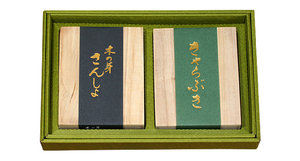 木の芽
さんしょ
きゃらぶき